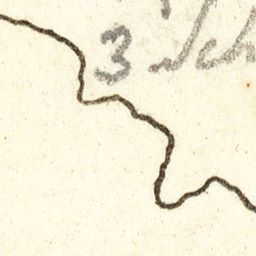 3 Sch